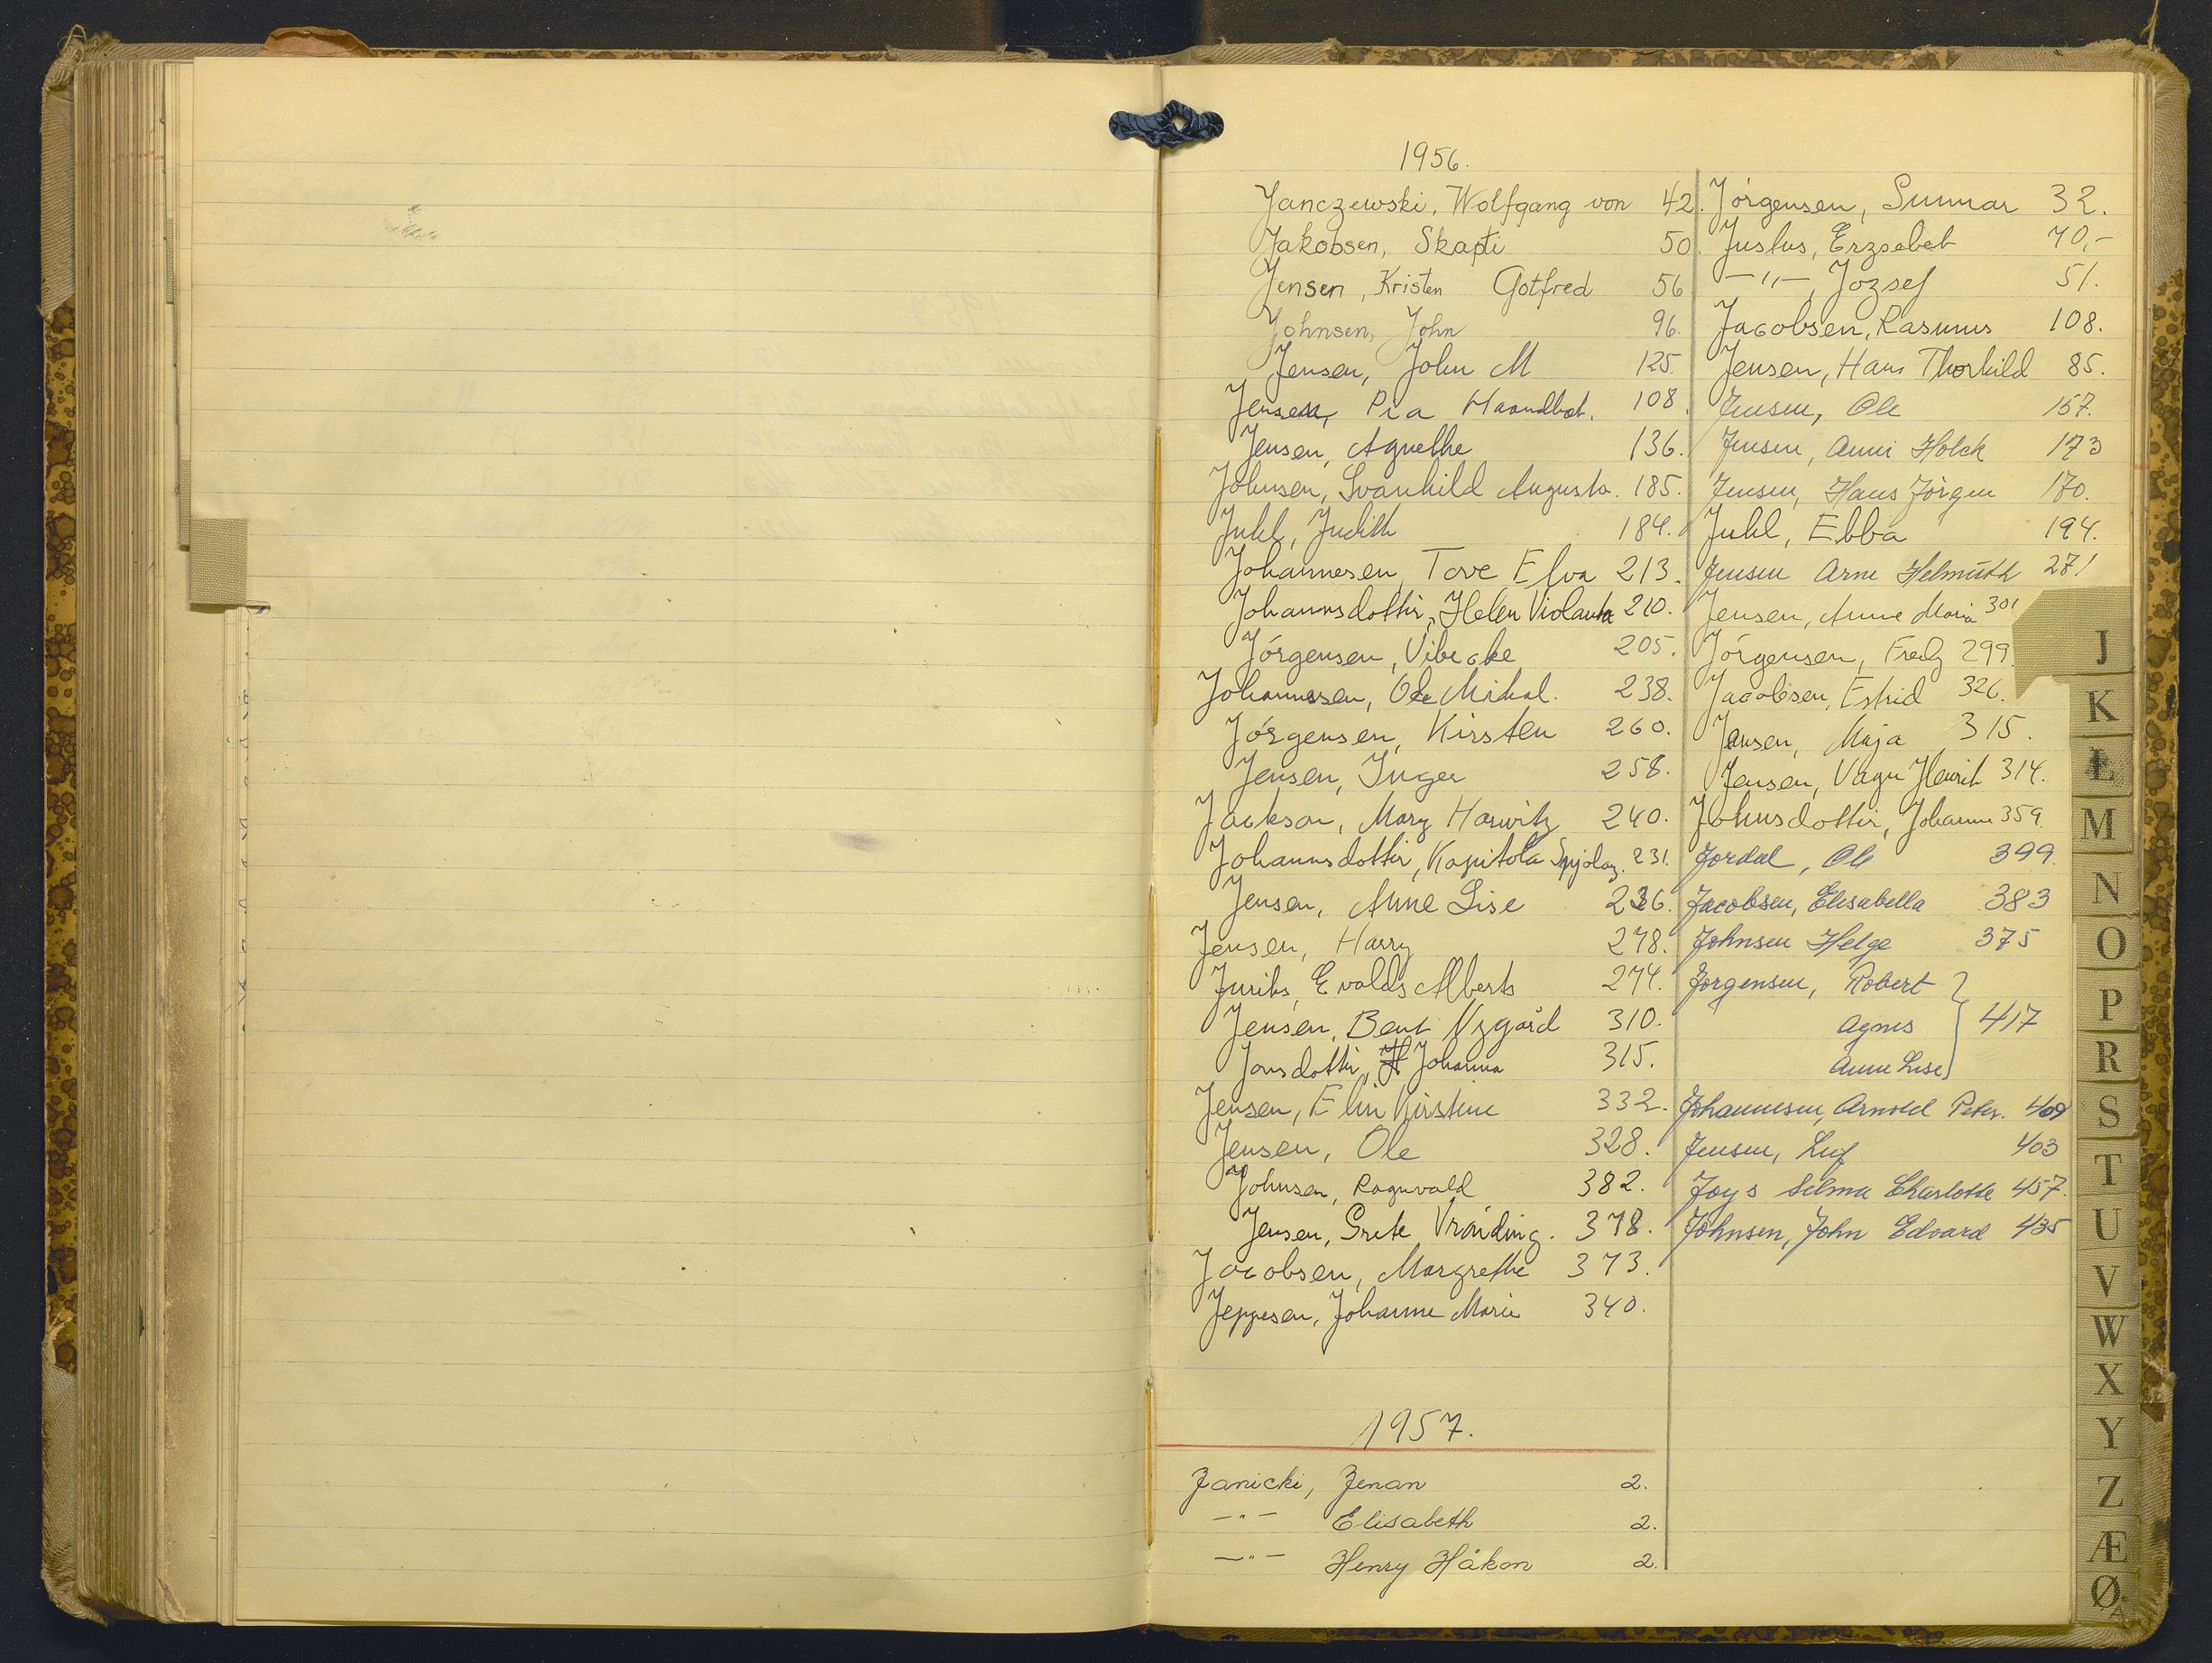 1956.
Janczewski, Wolfgang von 42.
Jakobsen, Skapti 50
Jensen, Kristen Gotfred 56
Johnsen, John 96.
Jensen, John M 125.
Jensen, Pia Haandbæk. 108
Jensen, Agnethe 136.
Johnsen, Svanhild Augusta. 185.
Juhl, Judith 184.
Johannesen, Tove Elva 213.
Johannsdottir, Helen Violanta 210.
Jörgensen, Vibecke 205.
Johannesen, Ole Mikal. 238.
Jörgensen, Kirsten 260.
Jensen, Inger 258.
Jackson, Mary Harwitz 240.
Johannsdottir, Kapitola Snjolaug. 231.
Jensen, Anne Lise 236.
Jensen, Harry 278.
Juriks, Evalds Alberts 274.
Jensen, Bent Nygård 310.
Jonsdottir, Johanna 315.
Jensen, Elin Kirstine 332.
Jensen, Ole 328.
Johnsen, Ragnvald 382.
Jensen, Grete Vrånding. 378.
Jacobsen, Margrethe 373.
Jeppesen, Johanne Marie 340.
Jörgensen, Gunnar 32.
Justus, Erzsebet 70,-
-"-, Jozsef 51.
Jacobsen, Rasmus 108.
Jensen, Hans Thorkild 85.
Jensen, Ole 157.
Jensen, Anni Holck 173
Jensen, Hans Jörgen 170.
Juhl, Ebba 194.
Jensen Arne Helmuth 271
Jensen, Anne Marie 301
Jörgensen, Fredy 299.
Jacobsen, Estrid 326.
Jensen, Maja 315.
Jensen, Vagn Henrik 314.
Johnsdottir, Johanne 359.
Jordal, Ole 399.
Jacobsen, Elisabella 383
Johnsen Helge 375
Jorgensen, Robert
Agnes 417
Anne Lise
Johannesen, Arnold Peter. 409
Jensen, Leif 403
Joys Selma Charlotte 457.
Johnsen, John Edvard 435
1957.
Janicki, Zenan 2.
-"- Elisabeth 2.
-"- Henry Håkon 2.
J
K
L
M
N
O
P
R
S
T
U
V
W
X
Y
Z
Æ
Ø